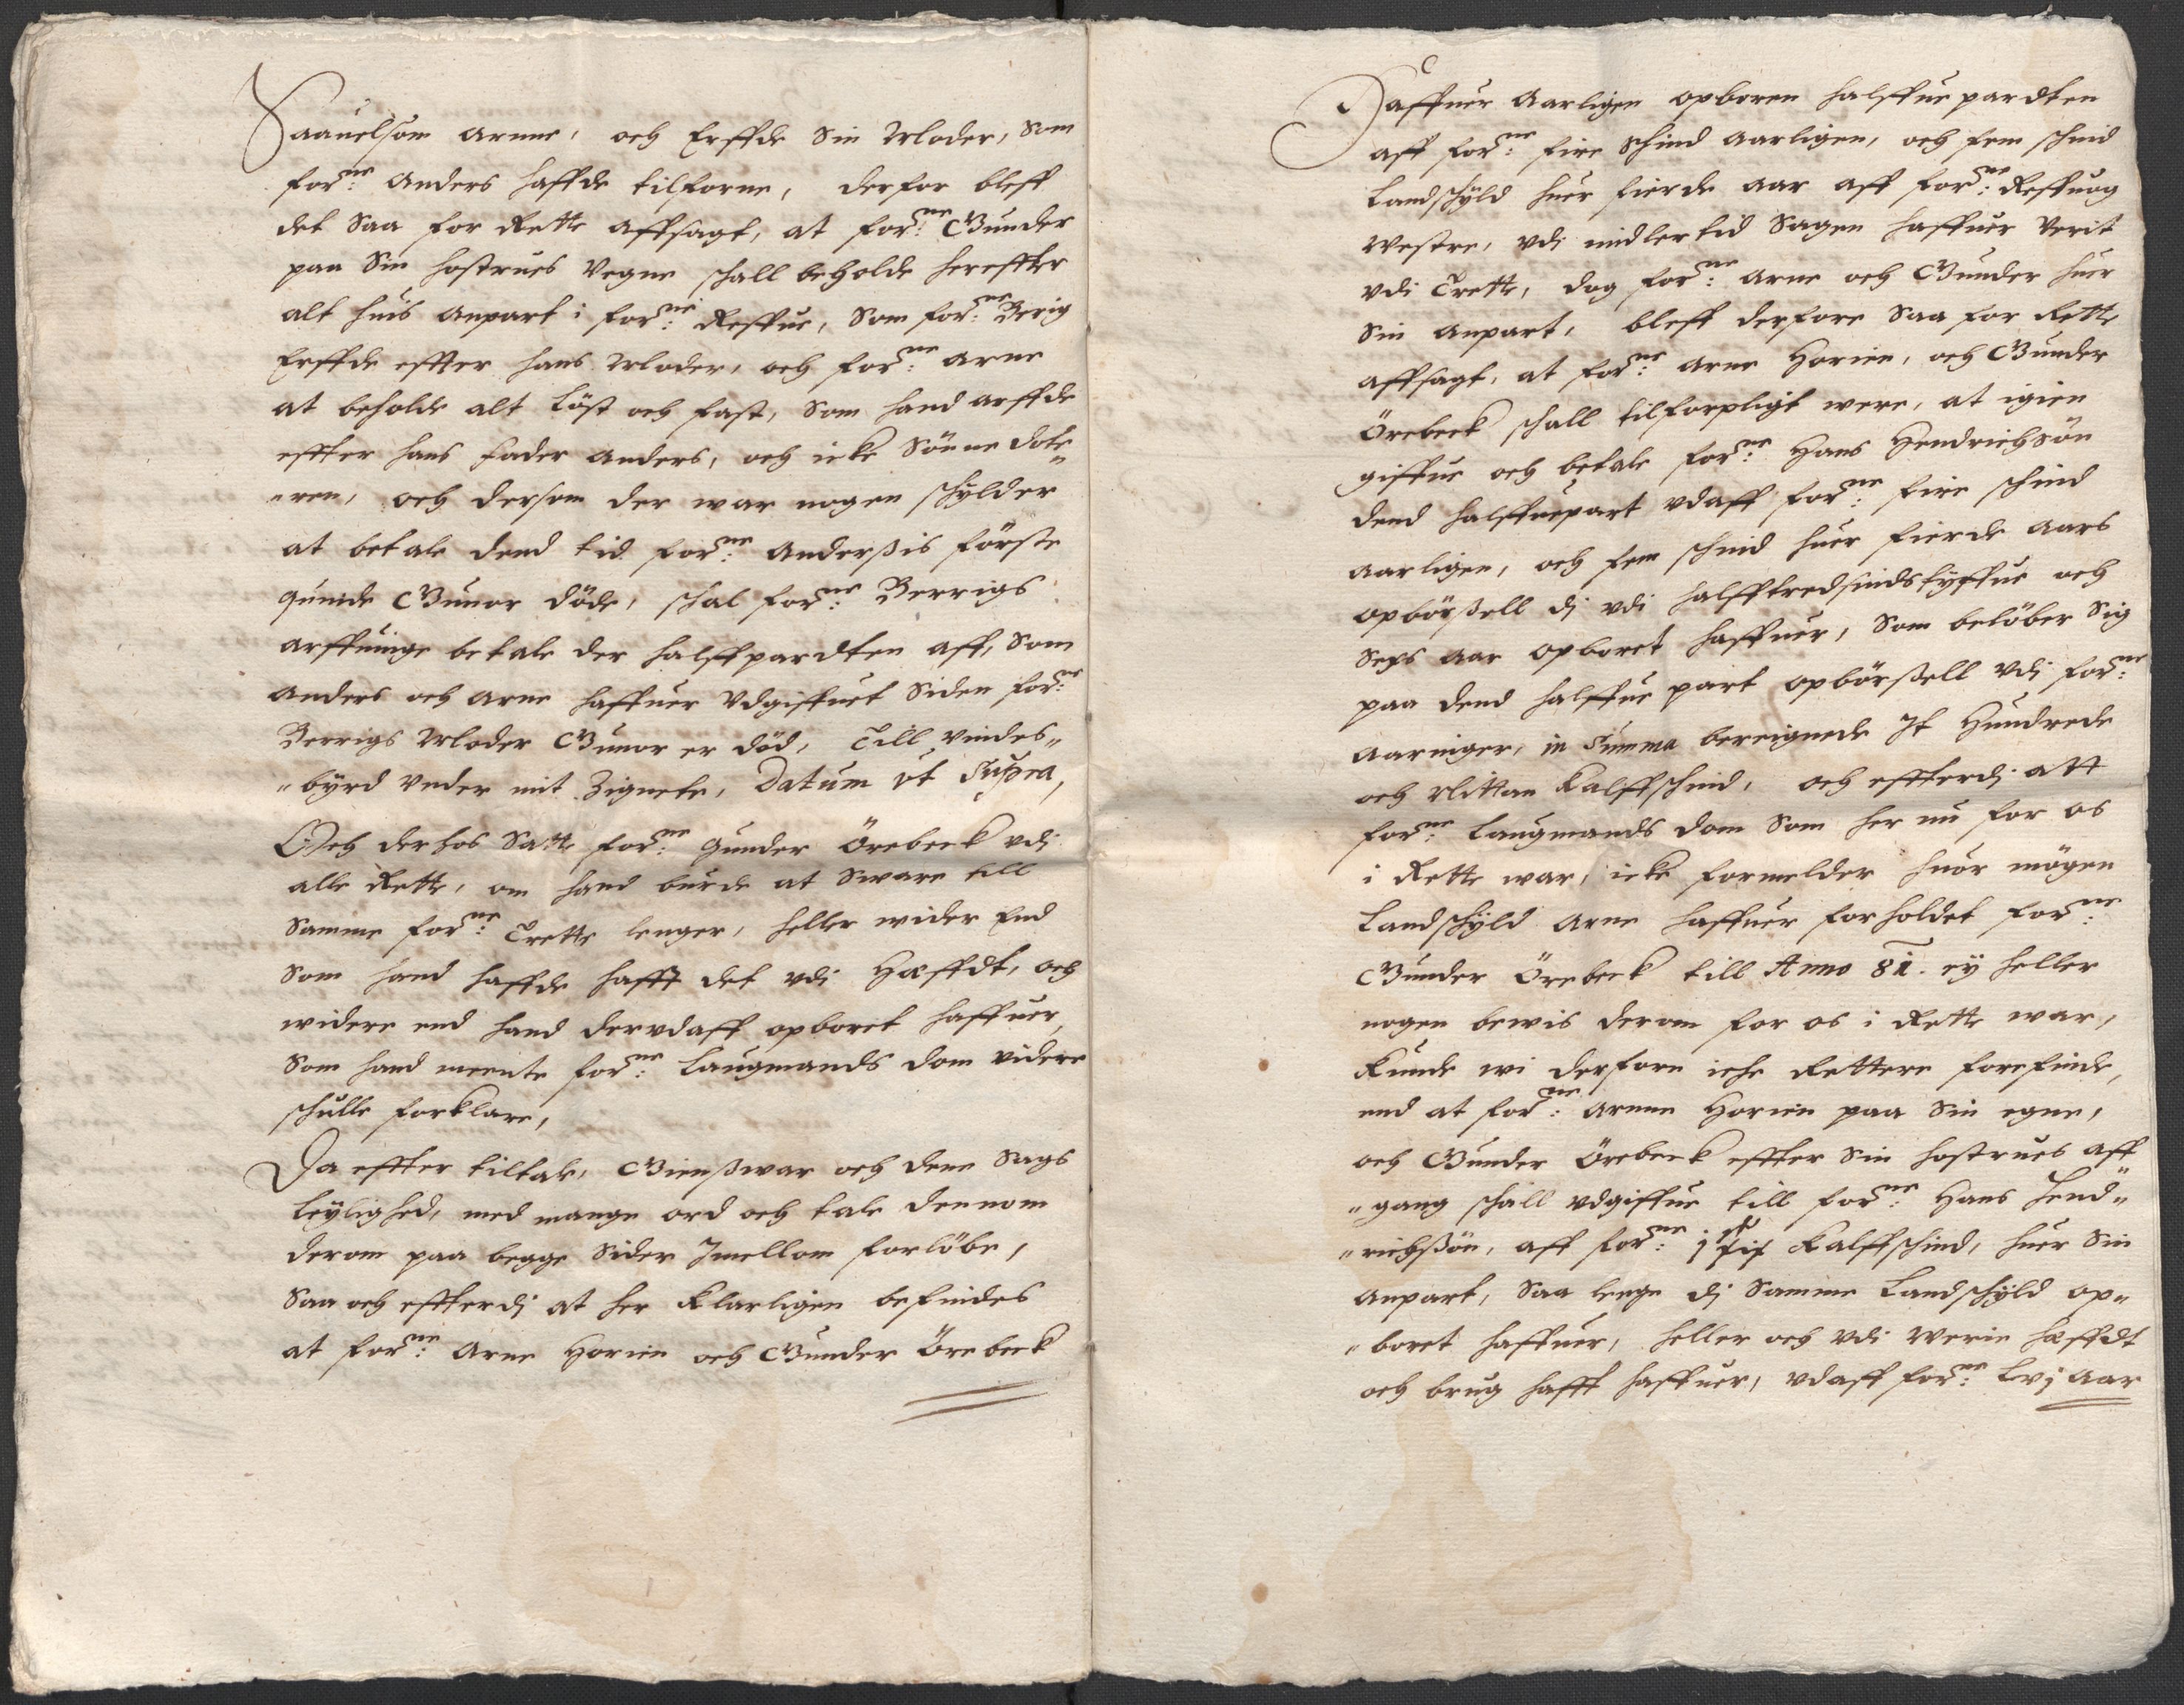 Saauelsom Arnne, och Erffde Sin Moder, Som
for:ne Anders haffde tilforne, derfor bleff
det Saa for Rette affsagt, at for:ne Gunder
paa Sin hostrues Vegne schall beholde hereffter
alt huis anpart i for:ne Reffue, Som for:ne Berig
Erffde effter hans Moder, och for:ne Arne
at beholde alt löst och fast, Som hand arffde
effter hans fader Anders, och icke Sönne dote„
„ren, och dersom der war nogen schylder
at betale dend tid for:ne Anderßis förste
quinde Gunor döde, schal for:ne Berrigs
arffuinge betale der halffpardten aff, Som
Anders och Arne haffuer Vdgiffuet Siden for:ne
Berrigs Moder Gunor er död, Till vindes„
„byrd Vnder mit Zignete, Datum vt Supra,
Och derhos Satte for:ne Gunder Örebeck vdi
alle Rette, om hand burde at Sware till
Samme for:ne Trette lenger, heller wider End
Som hand haffde hafft det vdi Hæffdt, och
widere end hand dervdaff opboret haffuer,
Som hand meente for:ne Laugmands dom videre
schulle forklare,
Da effter tiltale, Gienßwar och dene Sags
leylighed, med mange ord och tale dennom
derom paa begge Sider Imellom forlöbe,
Saa och effterdj at her Klarligen befindes
at for:ne Arne Horien och Gunder Örebeck
Haffuer Aarligen opboren halffue pardten
aff for:ne fire Schind Aarligen, och fem schind
Landschyld huer fierde Aar aff for:ne Reffuog
westre, vdi midlertid Sagen haffuer Verit
vdi Trette, dog for:ne Arne och Gunder huer
Sin anpart, bleff derfore Saa for Rette
affsagt, at for:ne Arne Horien, och Gunder
Örebeck schall tilforpligt were, at igien
giffue och betale for:ne Hans Hendrichsön
dend halffuepart vdaff for:ne fire schind
Aarligen, och fem schind huer fierde Aars
opbörßell dj vdi halfftredsindstyffue och
Sex Aar opboret haffuer, Som belöber Sig
paa dend halffue part opbörßell vdi for:ne
Aaringer, in Summa bereignede It Hundrede
och Nittan Kalffschind, och effterdj att
for:ne Laugmands dom Som her nu for os
i Rette war, icke formelder huor mögen
Landschyld Arne haffuer forholdet for:ne
Gunder Örebeck till Anno 81. ey heller
nogen bewis derom for os i Rette war,
Kunde wi derfore iche Rettere forefinde,
end at for:ne Arnne Horien paa Sin egne,
och Gunder Örebeck effter Sin hostrues aff
„gang schall vdgiffue till for:ne Hans Hend„
„richßön, aff for:ne jc xix Kalffschind, huer Sin
anpart, Saa lenge dj Samme Landschyld op„
„boret haffuer, heller och vdi Werie hæffdt
och brug hafft haffuer, vdaff for:ne Lvj Aar